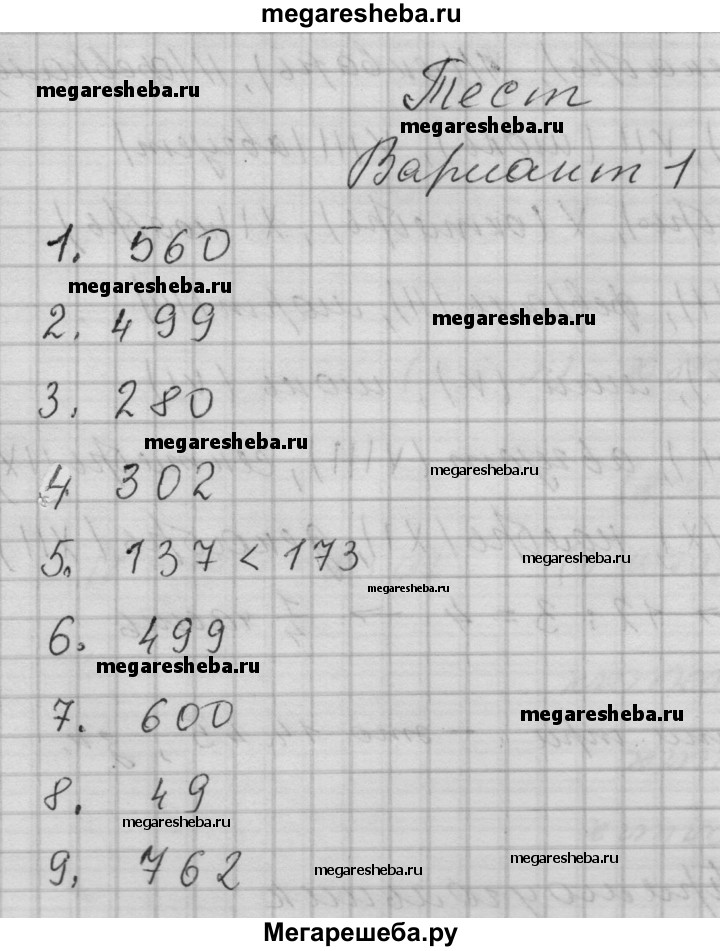 megaresheba.ru
megaresheba.ru
Тест
megaresheba.ru
Вариант 1
1. 560
megaresheba.ru
2. 499
megaresheba.ru
3. 280
megaresheba.ru
4 302
megaresheba.ru
5. 137 < 173
megaresheba.ru
megaresheba.ru
6. 499
megaresheba.ru
7. 600
megaresheba.ru
8. 49
megaresheba.ru
9. 762
megaresheba.ru
megaresheba.ru
Мегарешеба.ру